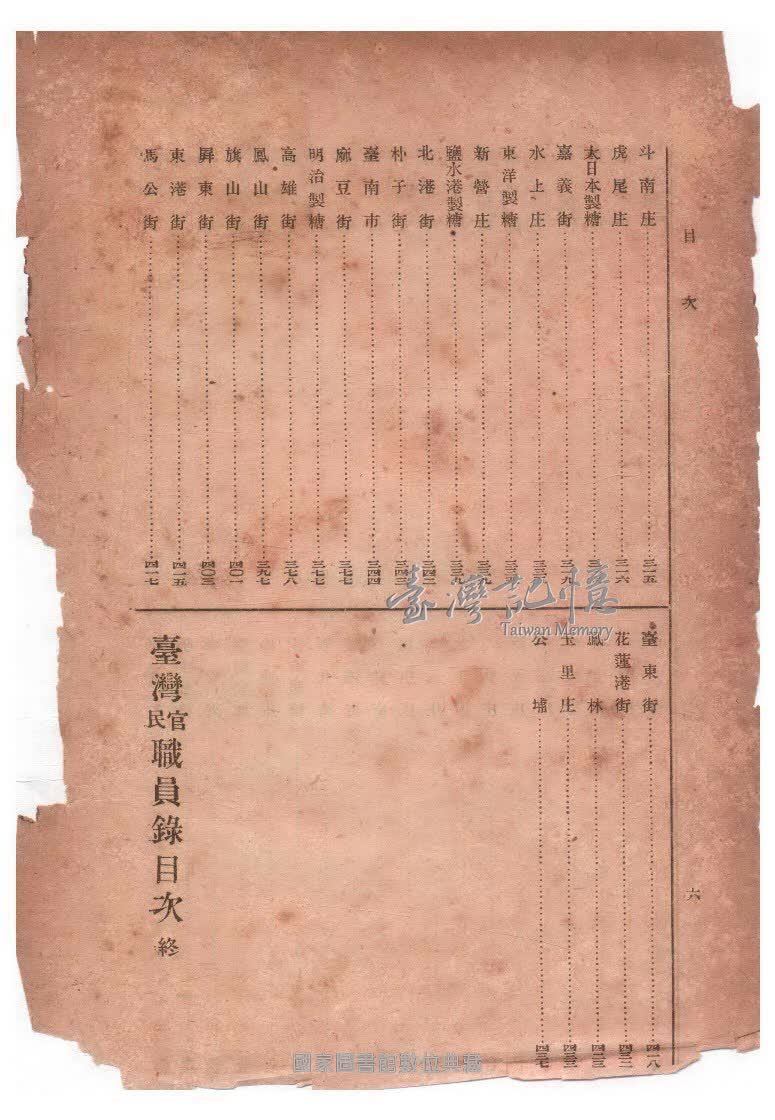 目次
六
斗南庄……三一五
虎尾庄……三一六
大日本製糖……三
嘉義街……三一九
水上庄……三三
東洋製糖……三三
新營庄……三三九
鹽水港製糖……三三九
北港街……三四二
朴子街……三四三
臺南市……三四四
麻豆街……三七七
明治製糖……三七七
高雄街……三七八
鳳山街……三九七
旗山街……四〇一
屏東街……四〇三
東港街……四一五
馬公街……四一七
臺東街……四一八
花蓮港街……四二二
鳳林……四三三
玉里庄……四三三
公墟……四三七
臺灣官民職員錄目次終
臺灣記憶
Taiwan Memory
國家圖書館數位典藏